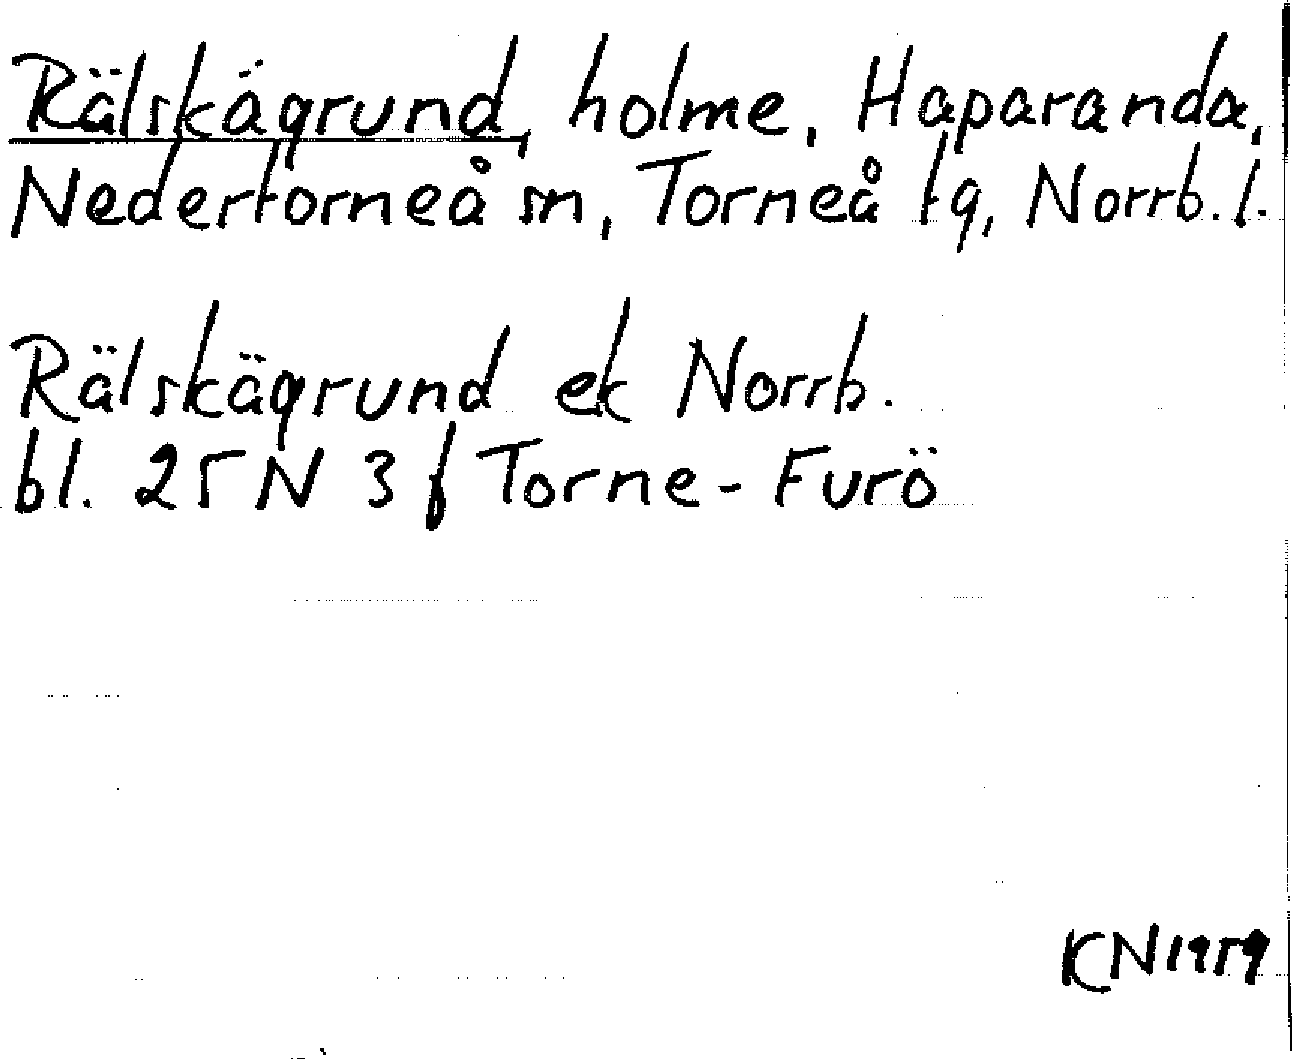 Rälskägrund, holme, Haparanda,
Nedertorneå sn, Torneå tg, Norrb. l.
Rälskägrund ek Norrb.
bl. 25 N 3 f Torne-Furö
KN 1959